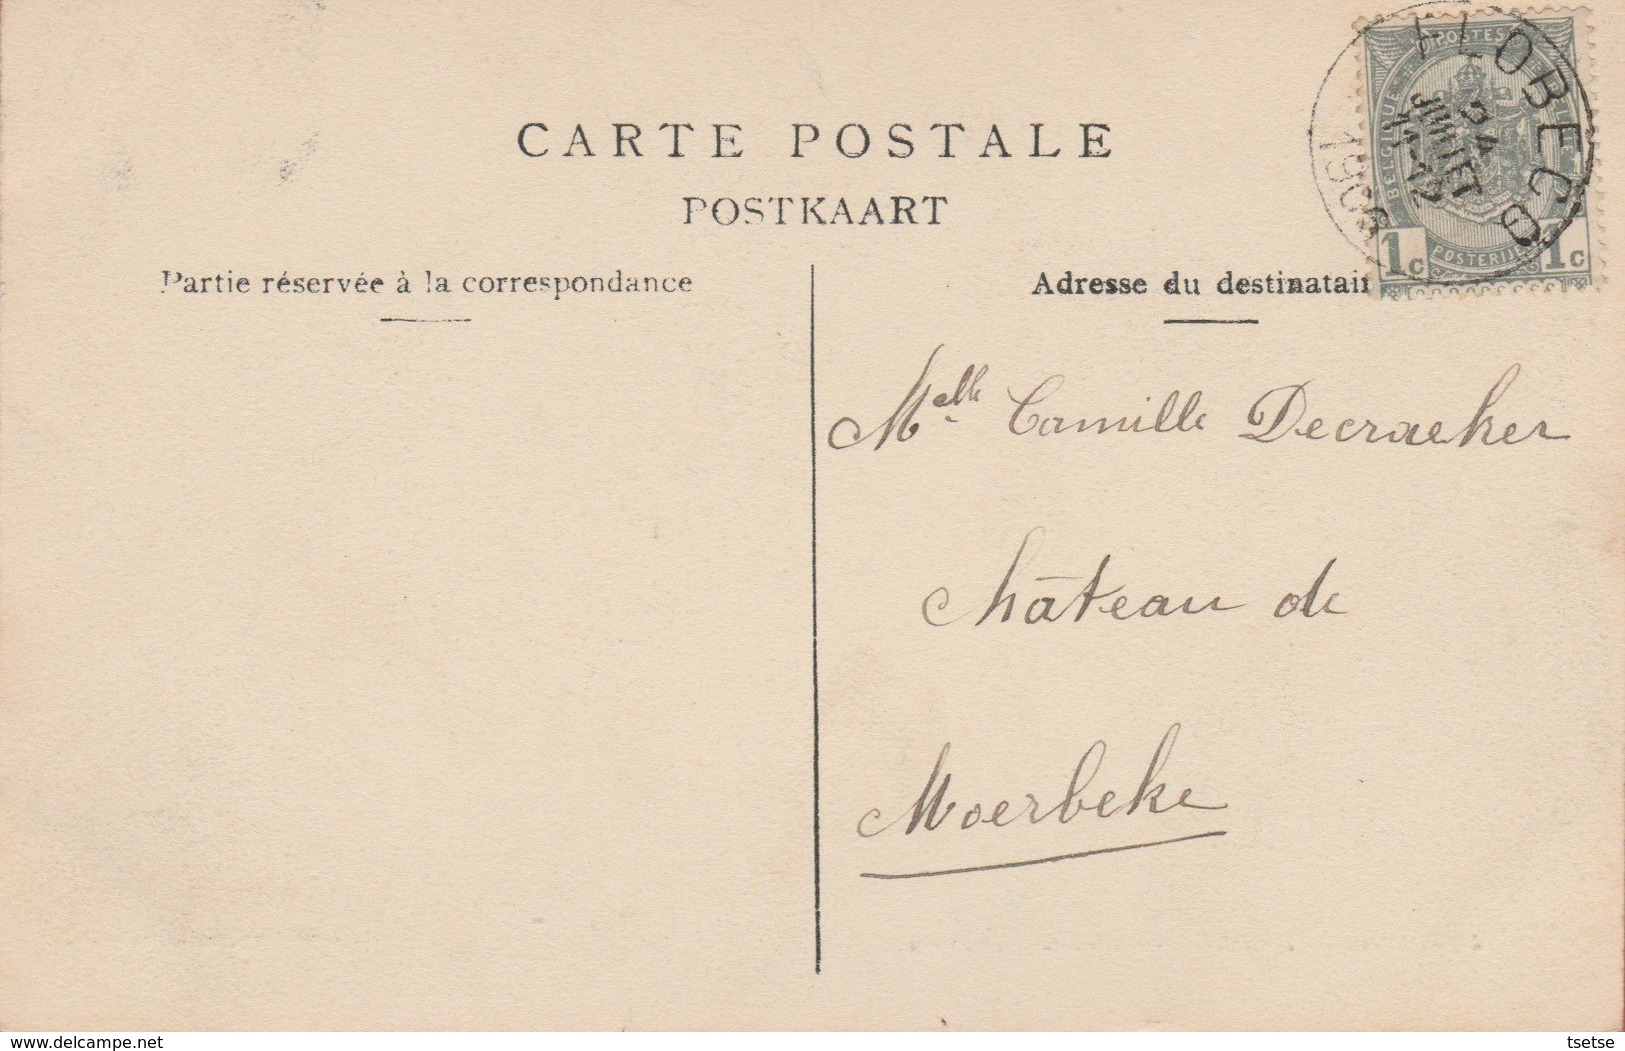 CARTE POSTALE
POSTKAART
Partie réservée à la correspondance
Adresse du destinatair
POSTES
BELGIQUE
POSTERIJEN
1c 1c
FLOBECQ
24
JUILLET
11-12
190
Melle Camille Decraeker
Château de
Moerbeke
www.delcampe.net
tsetse